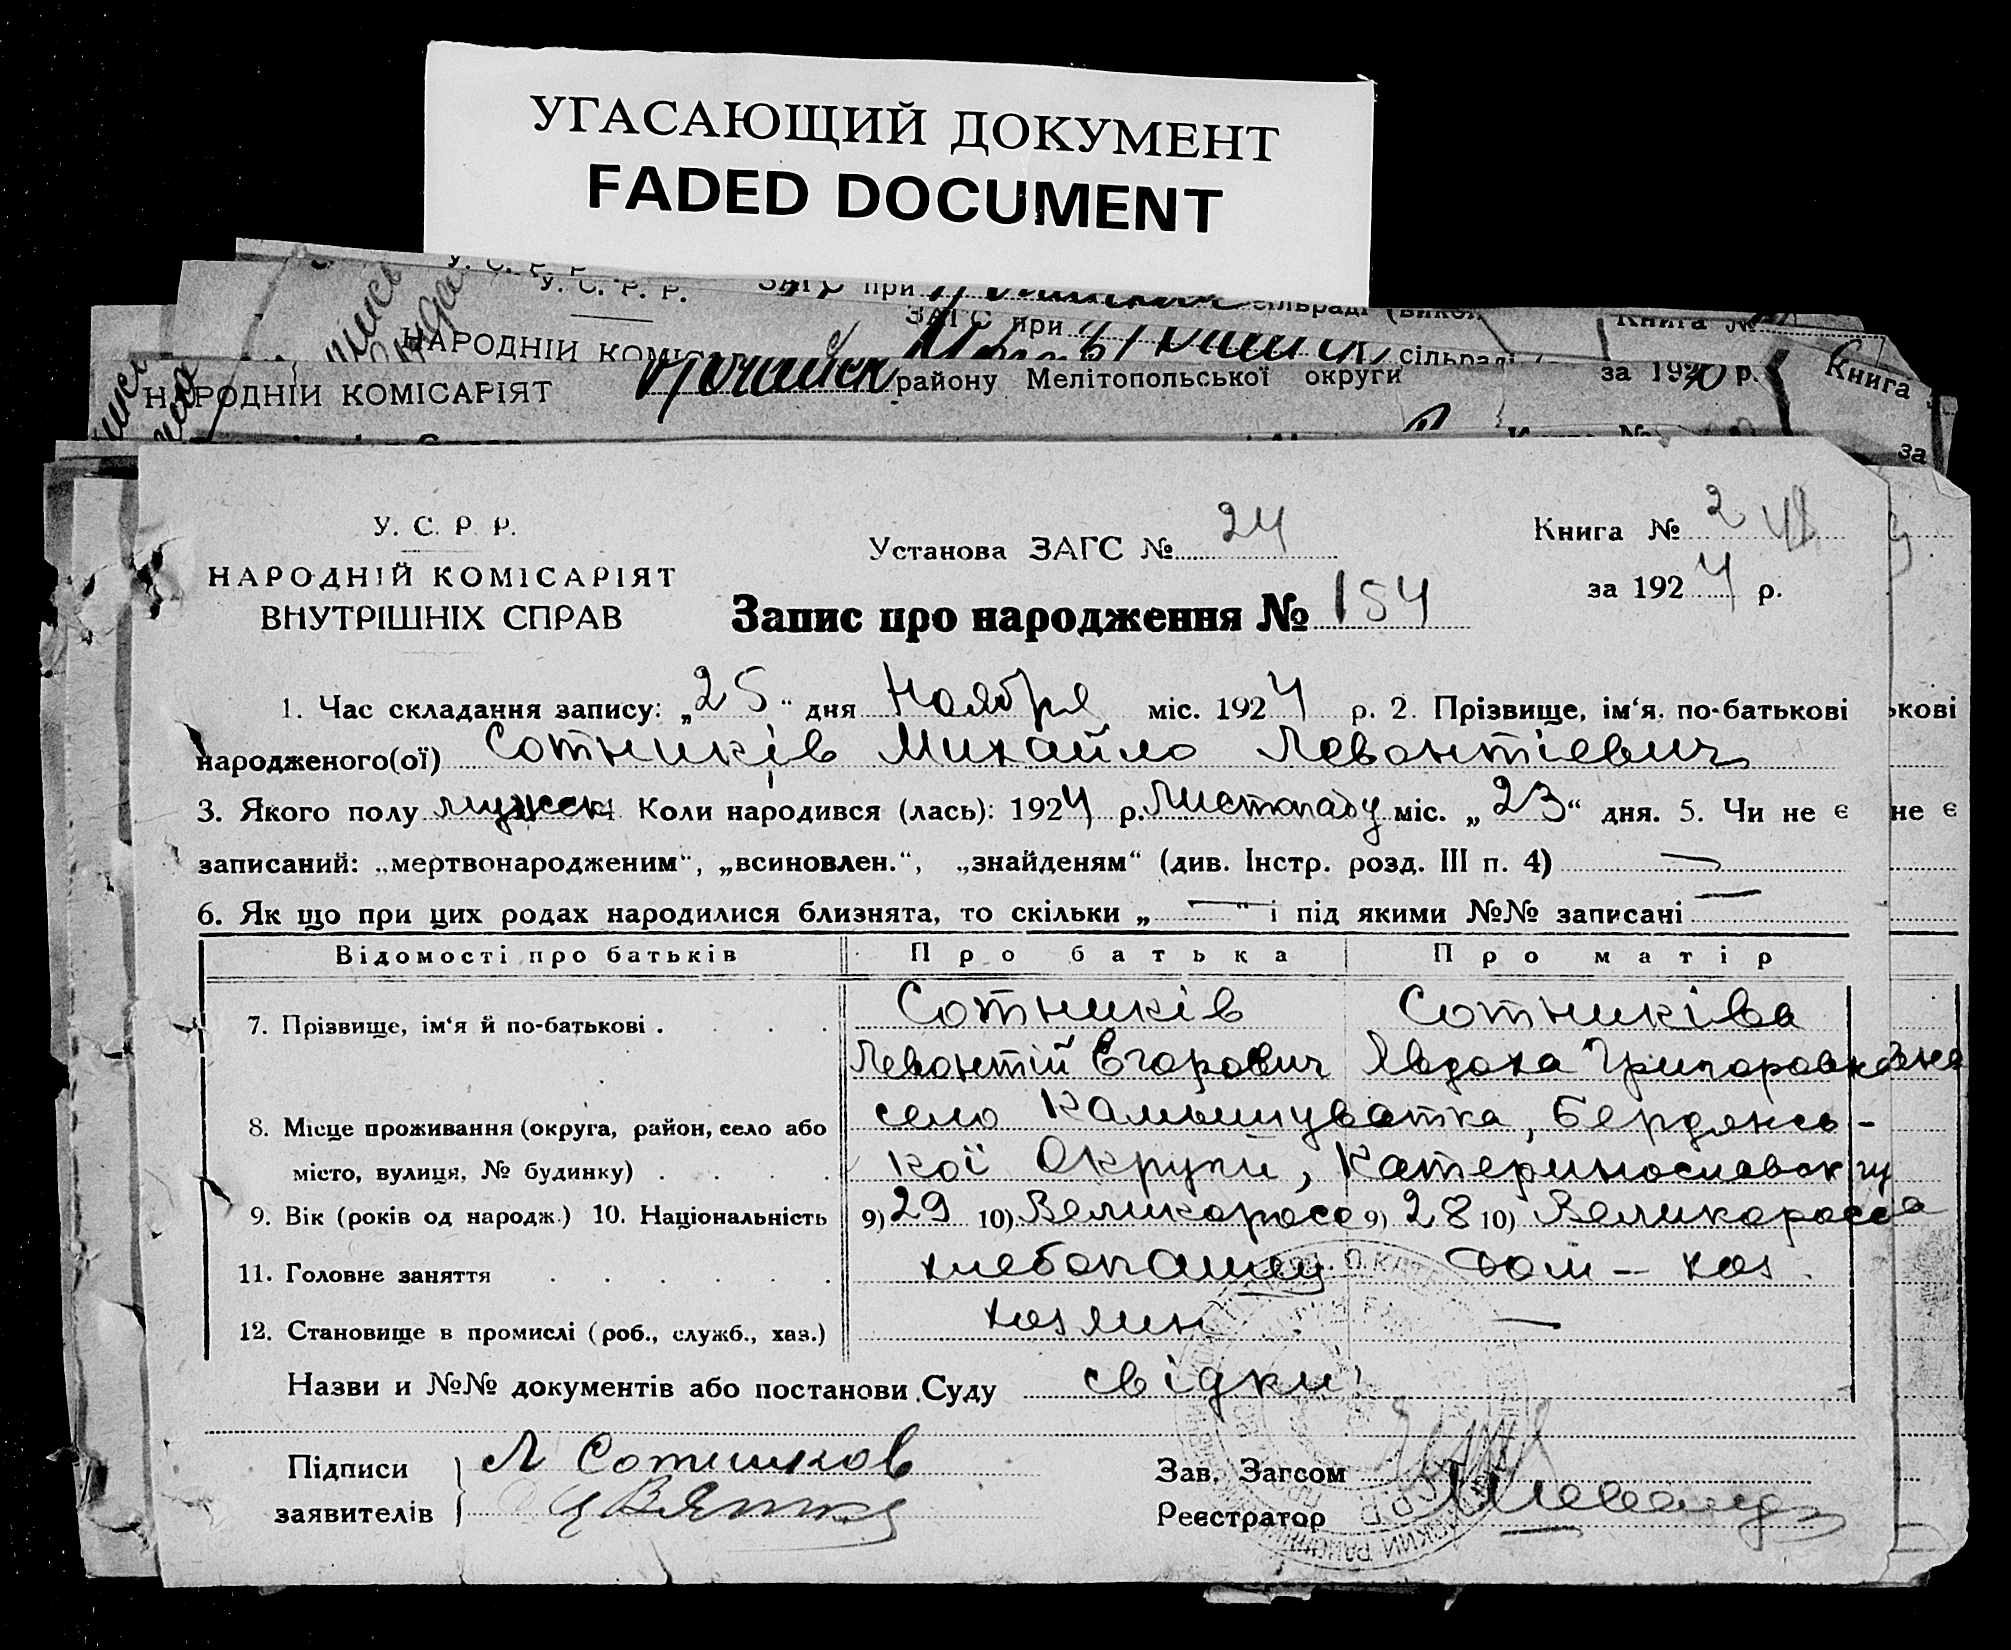 УГАСАЮЩИЙ ДОКУМЕНТ
FADED DOCUMENT
У. С. Р. Р.
У. С. Р. Р. ЗАГС при сільраді
ЗАГС при сільраді Книга №
НАРОДНІЙ
НАРОДНІЙ КОМІСАРІЯТ району Мелітопольської округи за 192 р. Книга
за
У. С. Р. Р. Установа ЗАГС № 24 Книга № 2
НАРОДНІЙ КОМІСАРІЯТ за 1924 р.
ВНУТРІШНІХ СПРАВ Запис про народження № 154
1. Час складання запису: „25“ дня Ноября міс. 1924 р. 2. Прізвище, ім‘я, по-батькові
народженого(ої) Сотників Михайло Левонтіевич
3. Якого полу мужск 4. Коли народився (лась): 1924 р. Листопаду міс. „23“ дня. 5. Чи не є
записаний: „мертвонародженим“, „всиновлен.“, „знайденям“ (див. Інстр. розд. III п. 4) —
6. Як що при цих родах народилися близнята, то скільки „—“ і під якими №№ записані —
Відомості про батьків Про батька Про матір
7. Прізвище, ім‘я й по-батькові . . . . Сотників Сотниківа
Левонтій Егорович Явдоха Григоровна
8. Місце проживання (округа, район, село або село Камышуватка, Бердянсь-
місто, вулиця, № будинку) . . . . кої Округи, Катеринославск гу
9. Вік (років од народж.) 10. Національність 9) 29 10) Великоросс 9) 28 10) Великоросса
11. Головне заняття . . . . . . хлебопашец дом – хоз.
12. Становище в промислі (роб., служб., хаз.) хозяин —
Назви и №№ документів або постанови Суду свідки
Підписи Л Сотников Зав. Загсом
заявителів Реєстратор